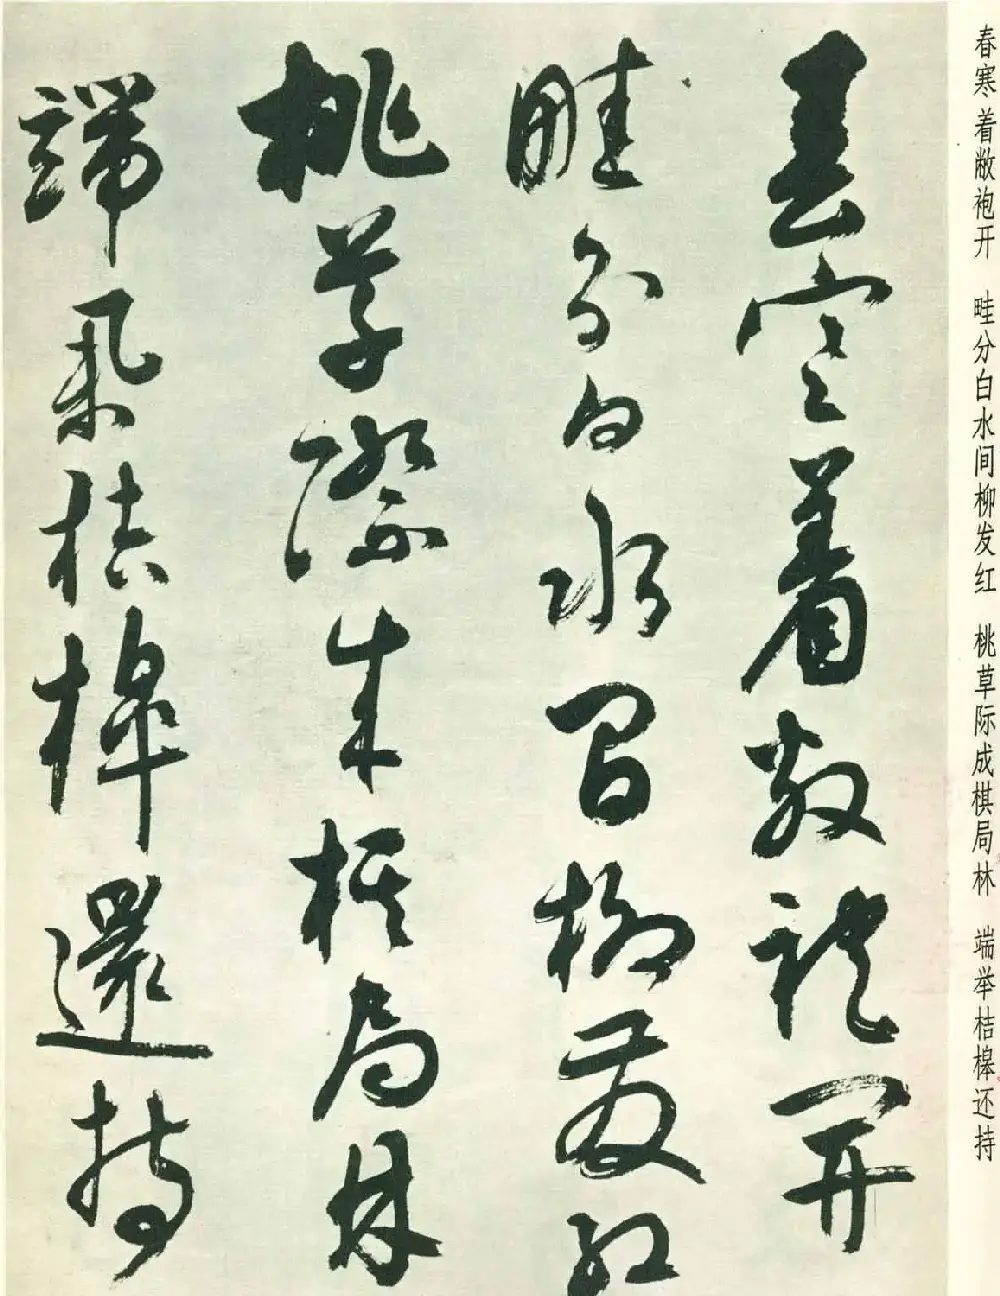 春寒着敝袍开 畦分白水间柳发红 桃草际成棋局林 端举桔槔还持
春寒着敝袍開
畦分白水間柳發紅
桃草際成棋局林
端舉桔槔還持